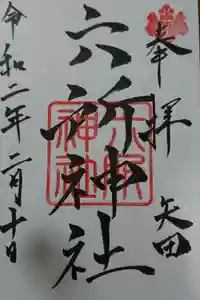 奉拝 矢田
六所神社
六所神社
令和二年二月十日